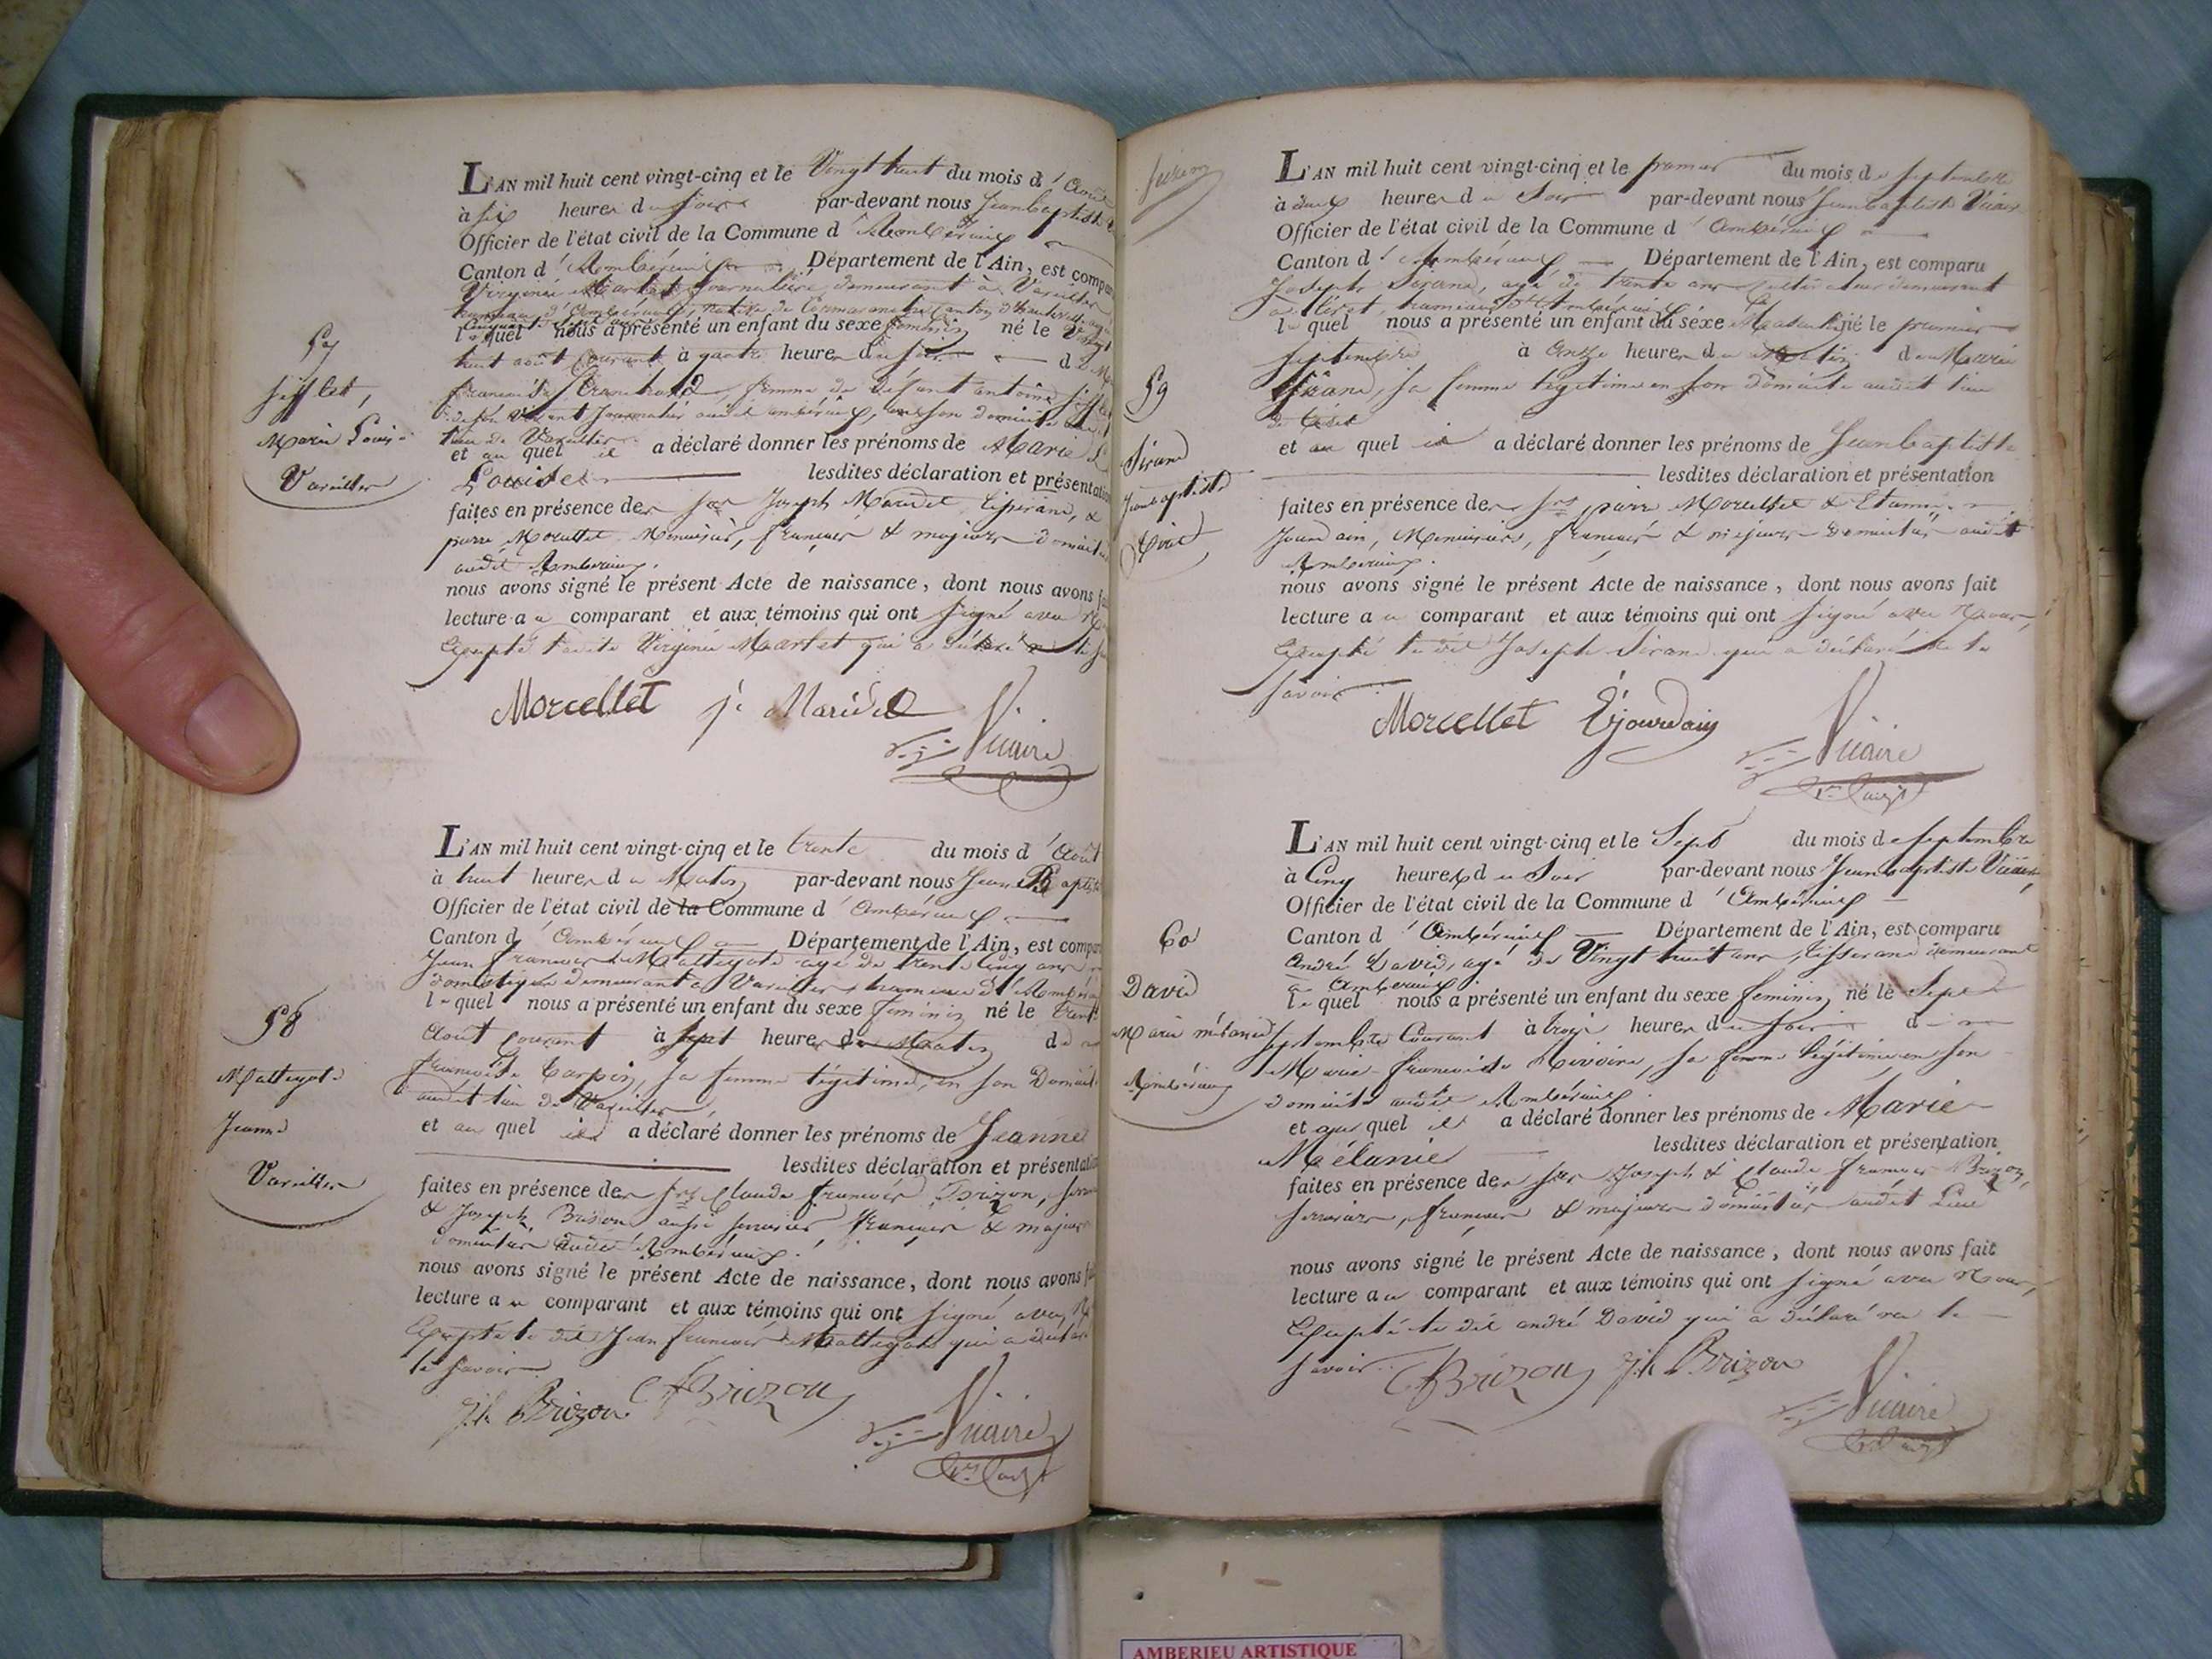 L'AN mil huit cent vingt-cinq et le Vingt huit du mois d'Août
à six heures du soir par-devant nous Jean baptiste
Officier de l'état civil de la Commune d'Ambérieux
Canton d'Ambérieux Département de l'Ain, est compa
Virginie Martet journalière, demeurant à Vareilles
hameau d'Ambérieux, native de
lequel nous a présenté un enfant du sexe feminin né le Vingt
huit août courant à quatre heures du soir de M
françoise femme de défunt antoine
de son vivant journalier audit ambérieux, en son domicile
lieu de Vareilles
et au quel il a déclaré donner les prénoms de Marie
Louise lesdites déclaration et présentation
faites en présence des srs Joseph Maridet, tisserand, &
pierre Morcellet Menuisier, français & majeurs domiciliés
audit Ambérieux.
nous avons signé le présent Acte de naissance, dont nous avons fa
lecture au comparant et aux témoins qui ont signé avec
Excepté ladite Virginie Martet qui a déclaré ne le
Morcellet j. Maridet
Vicaire
57
Sifflet,
Marie Louise
Vareilles
L'AN mil huit cent vingt-cinq et le trente du mois d'Août
à huit heures du Matin par-devant nous Jean Baptiste
Officier de l'état civil de la Commune d'Ambérieux
Canton d'Ambérieux Département de l'Ain, est compa
Jean françois Mattegot agé de trente cinq ans
domestique demeurant à Vareilles hameau d'Ambérieux
lequel nous a présenté un enfant du sexe feminin né le trente
Août courant à sept heures du Matin de
françoise Carpin, sa femme légitime, en son Domicile
audit lieu de Vareilles,
et au quel il a déclaré donner les prénoms de Jeanne
lesdites déclaration et présentation
faites en présence des srs Claude françois Brizon,
& Joseph Brison aussi serrurier français & majeurs
domiciliés audit Ambérieux.
nous avons signé le présent Acte de naissance, dont nous avons
lecture au comparant et aux témoins qui ont signé avec
Excepté le dit Jean françois Mattegot qui a déclaré
le savoir
Jh Brizon CfBrizon
Vicaire
58
Mattegot
Jeanne
Vareilles
L'AN mil huit cent vingt-cinq et le premier du mois de septembre
à deux heures du Soir par-devant nous Jean baptiste Vicaire
Officier de l'état civil de la Commune d'Ambérieux
Canton d'Ambérieux Département de l'Ain, est comparu
Joseph Sirand, agé de trente ans cultivateur demeurant
hameau d'Ambérieux
lequel nous a présenté un enfant du sexe Masculin né le premier
septembre à Onze heures du Matin de Marie
Sirand, sa femme légitime en son domicile audit lieu
et au quel il a déclaré donner les prénoms de Jean baptiste
lesdites déclaration et présentation
faites en présence des srs pierre Morcellet & Etienne
Jourdain, Menuisiers, français & majeurs domiciliés audit
Ambérieux.
nous avons signé le présent Acte de naissance, dont nous avons fait
lecture au comparant et aux témoins qui ont signé avec Nous,
Excepté le dit Joseph Sirand qui a déclaré ne le
savoir
Morcellet Ejourdain
Vicaire
59
Sirand
Jean baptiste
L'AN mil huit cent vingt-cinq et le Sept du mois de septembre
à Cinq heures du Soir par-devant nous Jean baptiste Vicaire,
Officier de l'état civil de la Commune d'Ambérieux
Canton d'Ambérieux Département de l'Ain, est comparu
André David, agé de Vingt huit ans, tisserand demeurant
à Ambérieux
lequel nous a présenté un enfant du sexe feminin né le Sept
septembre Courant à trois heures du soir de
Marie françoise Rivoire, sa femme légitime en son
domicile audit Ambérieux
et au quel il a déclaré donner les prénoms de Marie
Mélanie lesdites déclaration et présentation
faites en présence des srs Joseph & Claude françois Brizon,
serruriers, français & majeurs domiciliés audit Lieu
nous avons signé le présent Acte de naissance, dont nous avons fait
lecture au comparant et aux témoins qui ont signé avec Nous,
Excepté le dit andré David qui a déclaré ne le
savoir.
CfBrizon Jh Brizon
Vicaire
60
David
Marie mélanie
Ambérieux
AMBERIEU ARTISTIQUE